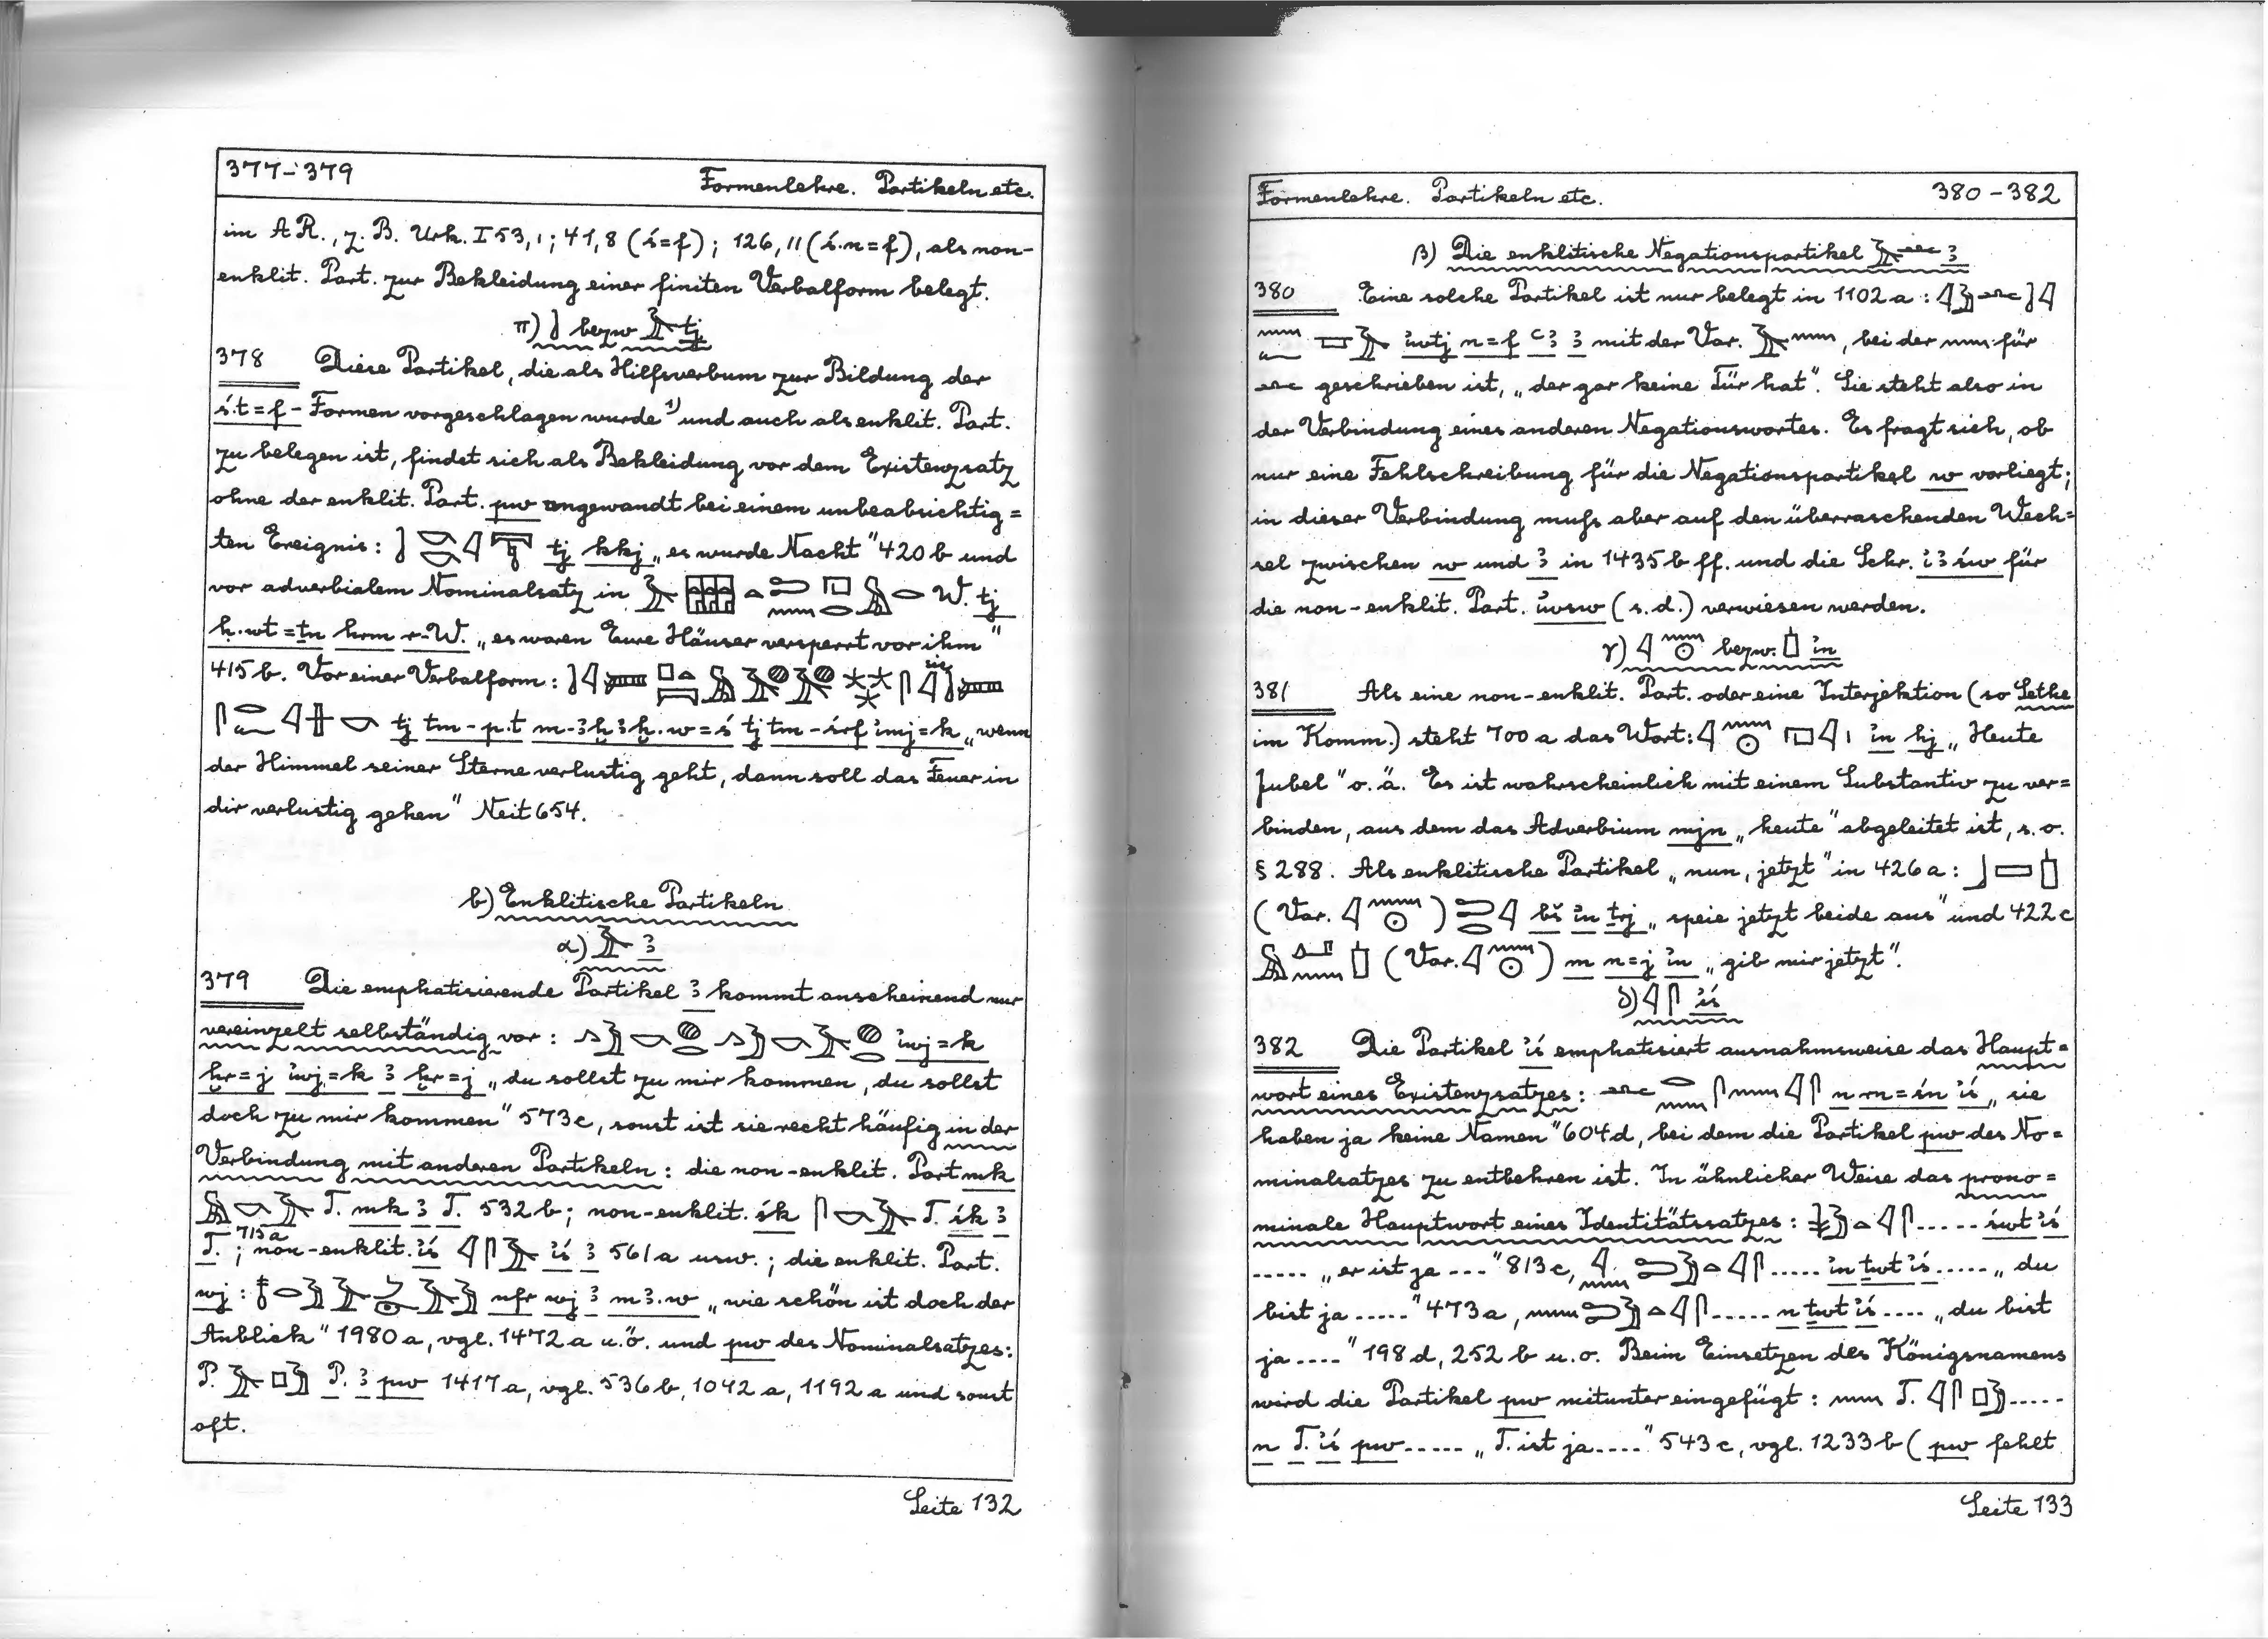 377-379
Formenlehre. Partikeln etc.
im AR., z. B. Urk. I 53,1; 41,8 (ś=f); 126,11 (ś.n=f), als non-
enklit. Part. zur Bekleidung einer finiten Verbalform belegt.
π) bezw. tj
378 Diese Partikel, die als Hilfsverbum zur Bildung der
ś.t=f-Formen vorgeschlagen wurde 1) und auch als enklit. Part.
zu belegen ist, findet sich als Bekleidung vor dem Existenzsatz
ohne der enklit. Part. pw angewandt bei einem unbeabsichtig=
ten Ereignis: tj kkj „es wurde Nacht" 420 b und
vor adverbialem Nominalsatz in W. tj
ḥ.wt=ṯn hrm r-W. „es waren Eure Häuser versperrt vor ihm"
415 b. Vor einer Verbalform:
tj tm-p.t m-ꜣḫꜣḫ.w=ś tj tm-śrf imj=k „wenn
der Himmel seiner Sterne verlustig geht, dann soll das Feuer in
dir verlustig gehen" Neit 654.
b) Enklitische Partikeln
α) ꜣ
379 Die emphatisierende Partikel ꜣ kommt anscheinend nur
vereinzelt selbständig vor: iwj=k
ḫr=j iwj=k ꜣ ḫr=j „du sollst zu mir kommen, du sollst
doch zu mir kommen" 573 c, sonst ist sie recht häufig in der
Verbindung mit anderen Partikeln: die non-enklit. Part mk
T. mk ꜣ T. 532 b; non-enklit. śk T. śk ꜣ
T. 715 a; non-enklit. iś iś ꜣ 561 a usw.; die enklit. Part.
wj: nfr wj ꜣ mꜣ.w „wie schön ist doch der
Anblick" 1980 a, vgl. 1472 a u.ö. und pw des Nominalsatzes:
P. P. ꜣ pw 1417 a, vgl. 536 b, 1042 a, 1192 a und sonst
oft.
Seite 132
Formenlehre. Partikeln etc.
380-382
β) Die enklitische Negationspartikel ꜣ
380 Eine solche Partikel ist nur belegt in 1102 a:
iwtj n=f ꜥꜣ ꜣ mit der Var. , bei der für
geschrieben ist, „der gar keine Tür hat". Sie steht also in
der Verbindung eines anderen Negationswortes. Es fragt sich, ob
nur eine Fehlschreibung für die Negationspartikel w vorliegt;
in dieser Verbindung muß aber auf den überraschenden Wech=
sel zwischen w und ꜣ in 1435 b ff. und die Schr. iꜣśw für
die non-enklit. Part. iwsw (s.d.) verwiesen werden.
γ) bezw. in
381 Als eine non-enklit. Part. oder eine Interjektion (so Sethe
im Komm.) steht 700 a das Wort: in hj „Heute
Jubel" o.ä. Es ist wahrscheinlich mit einem Substantiv zu ver=
binden, aus dem das Adverbium mjn „heute" abgeleitet ist, s.o.
§ 288. Als enklitische Partikel „nun, jetzt" in 426 a:
(Var. ) bš in ṯrj „speie jetzt beide aus" und 422 c
(Var. ) m n=j in „gib mir jetzt".
δ) iś
382 Die Partikel iś emphatisiert ausnahmsweise das Haupt=
wort eines Existenzsatzes: n rn=śn iś „sie
haben ja keine Namen" 604 d, bei dem die Partikel pw des No=
minalsatzes zu entbehren ist. In ähnlicher Weise das prono=
minale Hauptwort eines Identitätssatzes: ..... śwt iś
..... „er ist ja ..." 813 c, ..... in ṯwt iś ..... „du
bist ja ....." 473 a, ..... n ṯwt iś .... „du bist
ja ...." 198 d, 252 b u.o. Beim Einsetzen des Königsnamens
wird die Partikel pw mitunter eingefügt: T. .....
n T. iś pw ..... „T. ist ja ...." 543 c, vgl. 1233 b (pw fehlt
Seite 133